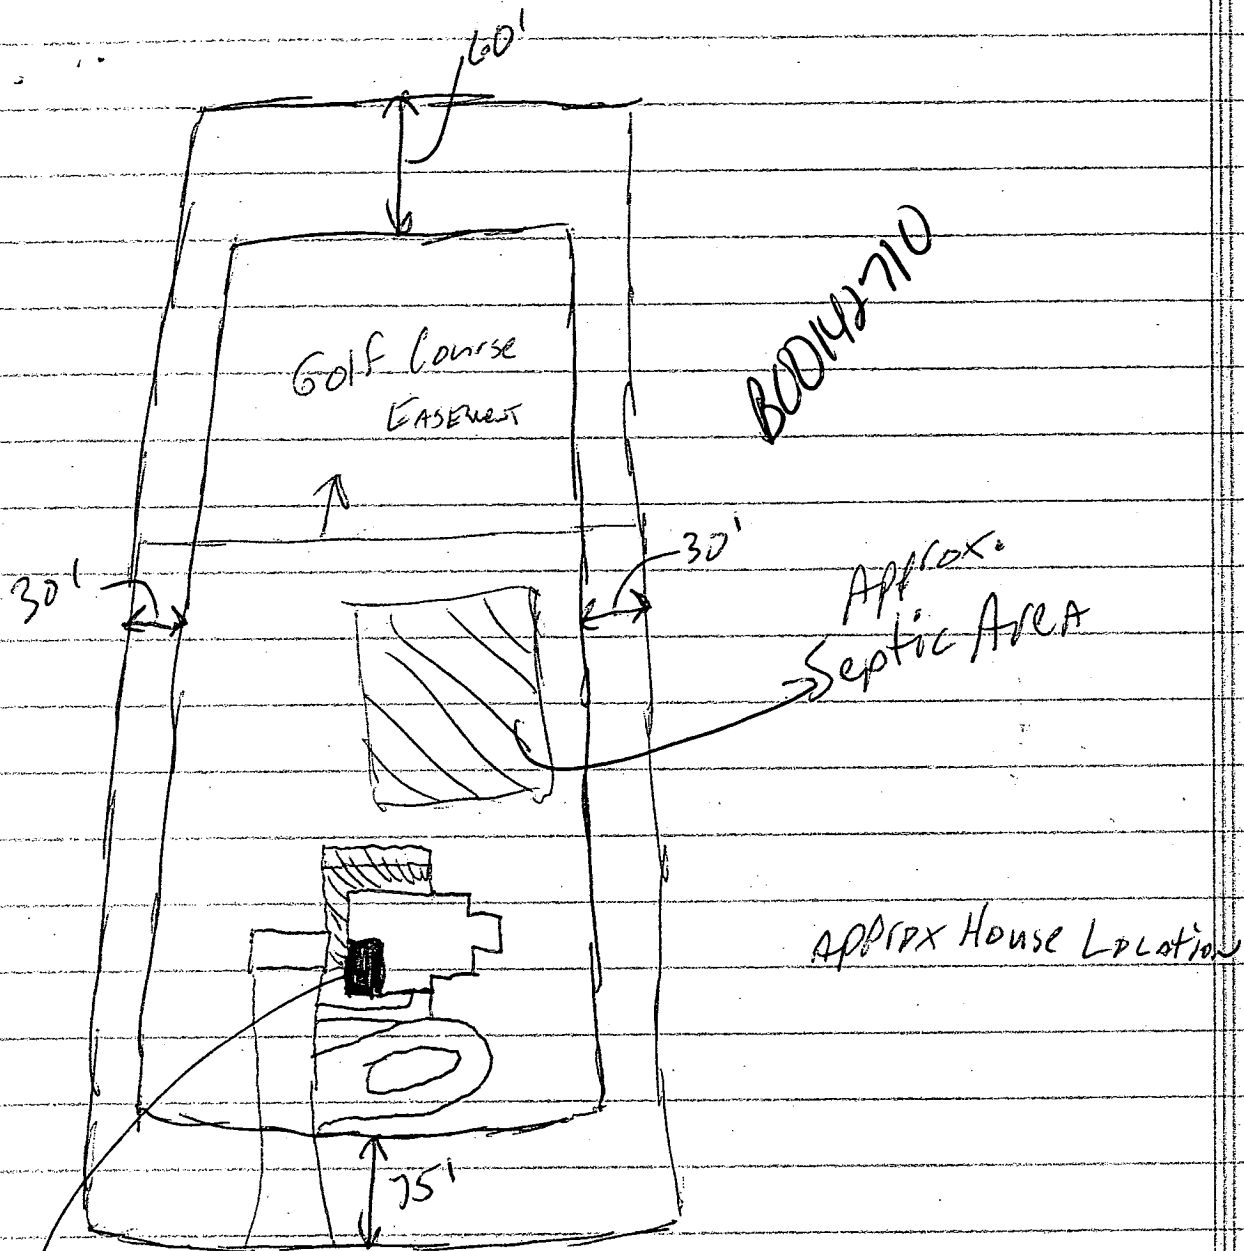 60'
Golf Course
Easement
B00142710
30'
30'
Approx.
Septic Area
Approx House Location
75'